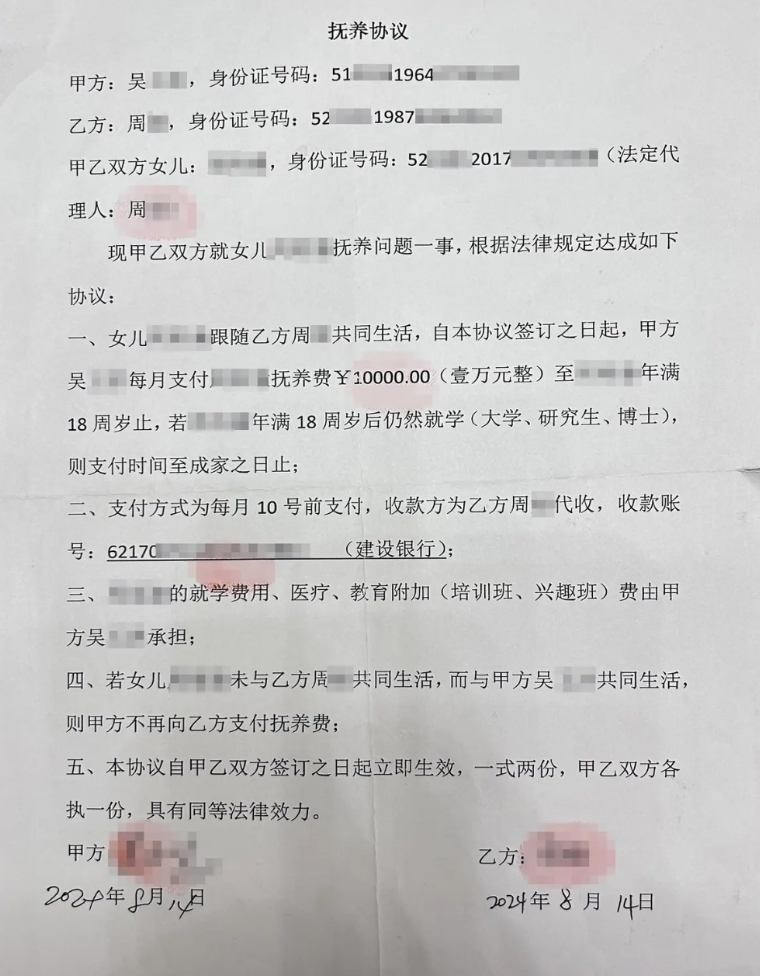 抚养协议
甲方：吴，身份证号码：51 1964
乙方：周，身份证号码：52 1987
甲乙双方女儿：，身份证号码：52 2017（法定代
理人：周
现甲乙双方就女儿抚养问题一事，根据法律规定达成如下
协议：
一、女儿跟随乙方周共同生活，自本协议签订之日起，甲方
吴每月支付抚养费￥10000.00（壹万元整）至年满
18周岁止，若年满18周岁后仍然就学（大学、研究生、博士），
则支付时间至成家之日止；
二、支付方式为每月10号前支付，收款方为乙方周代收，收款账
号：62170（建设银行）；
三、的就学费用、医疗、教育附加（培训班、兴趣班）费由甲
方吴承担；
四、若女儿未与乙方周共同生活，而与甲方吴共同生活，
则甲方不再向乙方支付抚养费；
五、本协议自甲乙双方签订之日起立即生效，一式两份，甲乙双方各
执一份，具有同等法律效力。
甲方 乙方：
2024年8月14日 2024年8月14日